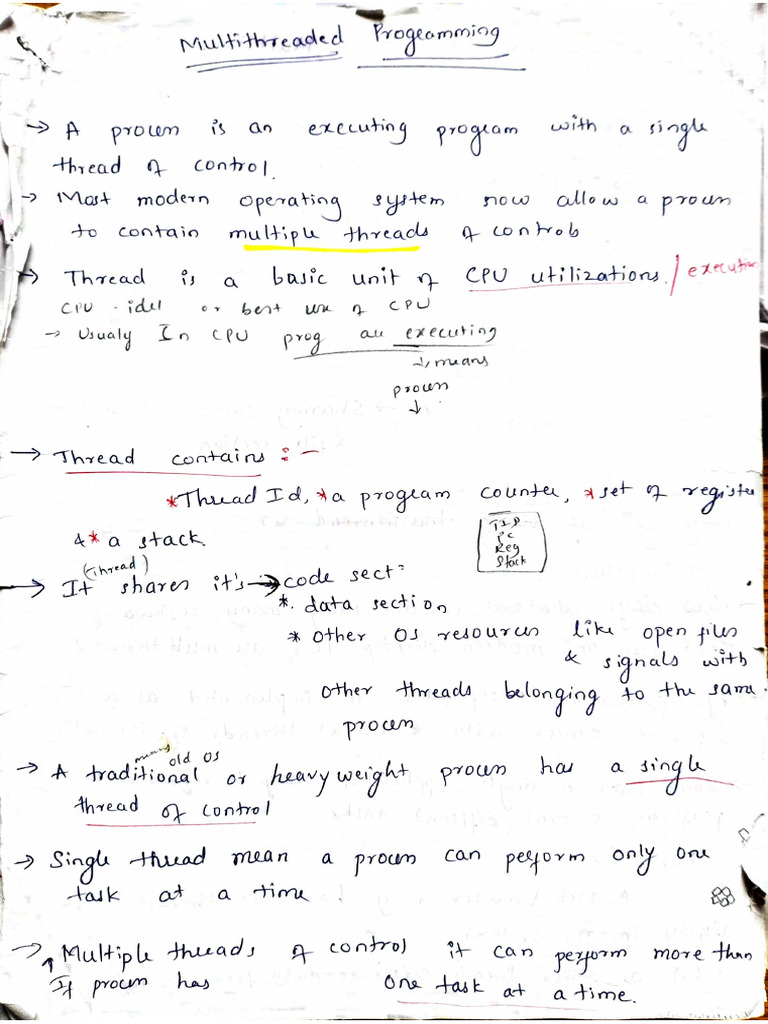 Multithreaded Programming
→ A process is an executing program with a single
thread of control.
→ Most modern operating system now allow a process
to contain multiple threads of controls
→ Thread is a basic unit of CPU utilizations. / execution
CPU - idel or best use of CPU
→ Usualy In CPU prog are executing
↓, means
process
↓
→ Thread contains : -
*Thread Id, *a program counter, *set of register
& * a stack.
TID
PC
Reg
Stack
(Thread)
→ It shares it's → code sect :
* data section
* other OS resources like open files
& signals with
other threads belonging to the same
process
means old OS
→ A traditional or heavyweight process has a single
thread of control
→ Single thread mean a process can perform only one
task at a time
→ Multiple threads of control it can perform more than
If process has one task at a time.